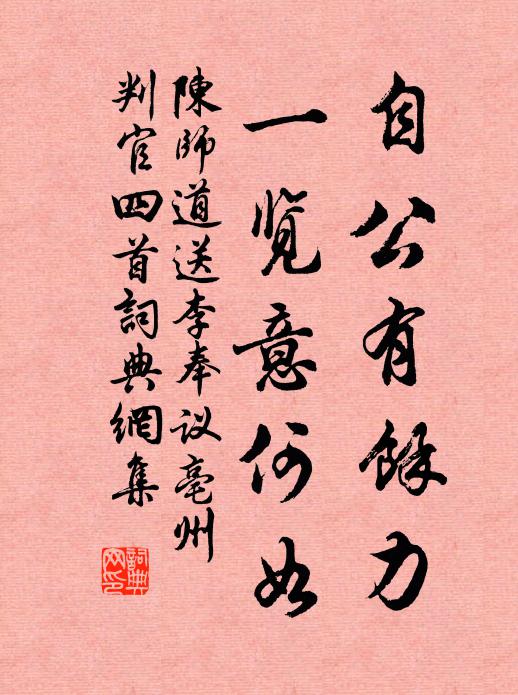 自公有餘力
一览意何如
陳師道送李奉议亳州
判官四首詞典網集
詞典網印